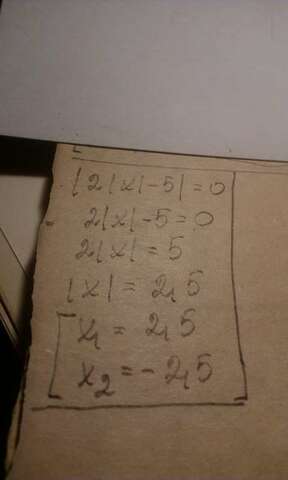 |2|x|-5|=0
2|x|-5=0
2|x|=5
|x|=2,5
x₁=2,5
x₂=-2,5